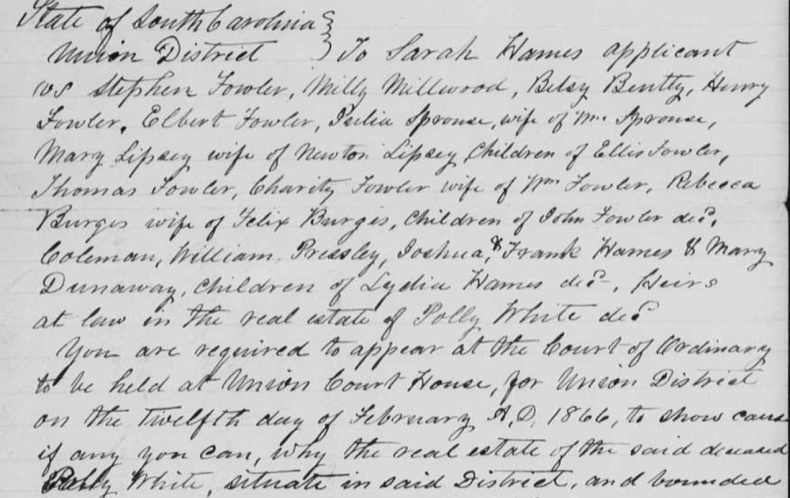 State of South Carolina }
Union District } To Sarah Hames applicant
vs Stephen Fowler, Milly Millwood, Betsy Bentty, Henry
Fowler, Elbert Fowler, Julia Sprouse, wife of Wm Sprouse,
Mary Lipsey wife of Newton Lipsey Children of Ellis Fowler,
Thomas Fowler, Charity Fowler wife of Wm Fowler, Rebecca
Burges wife of Felix Burges, Children of John Fowler decd,
Coleman, William, Pressley, Joshua, & Frank Hames & Mary
Dunaway, Children of Lydia Hames decd, Heirs
at law in the real estate of Polly White decd
You are required to appear at the Court of Ordinary
to be held at Union Court House, for Union District
on the twelfth day of February A.D. 1866, to show cause
if any you can, why the real estate of the said deceased
Polly White, situate in said District, and bounded